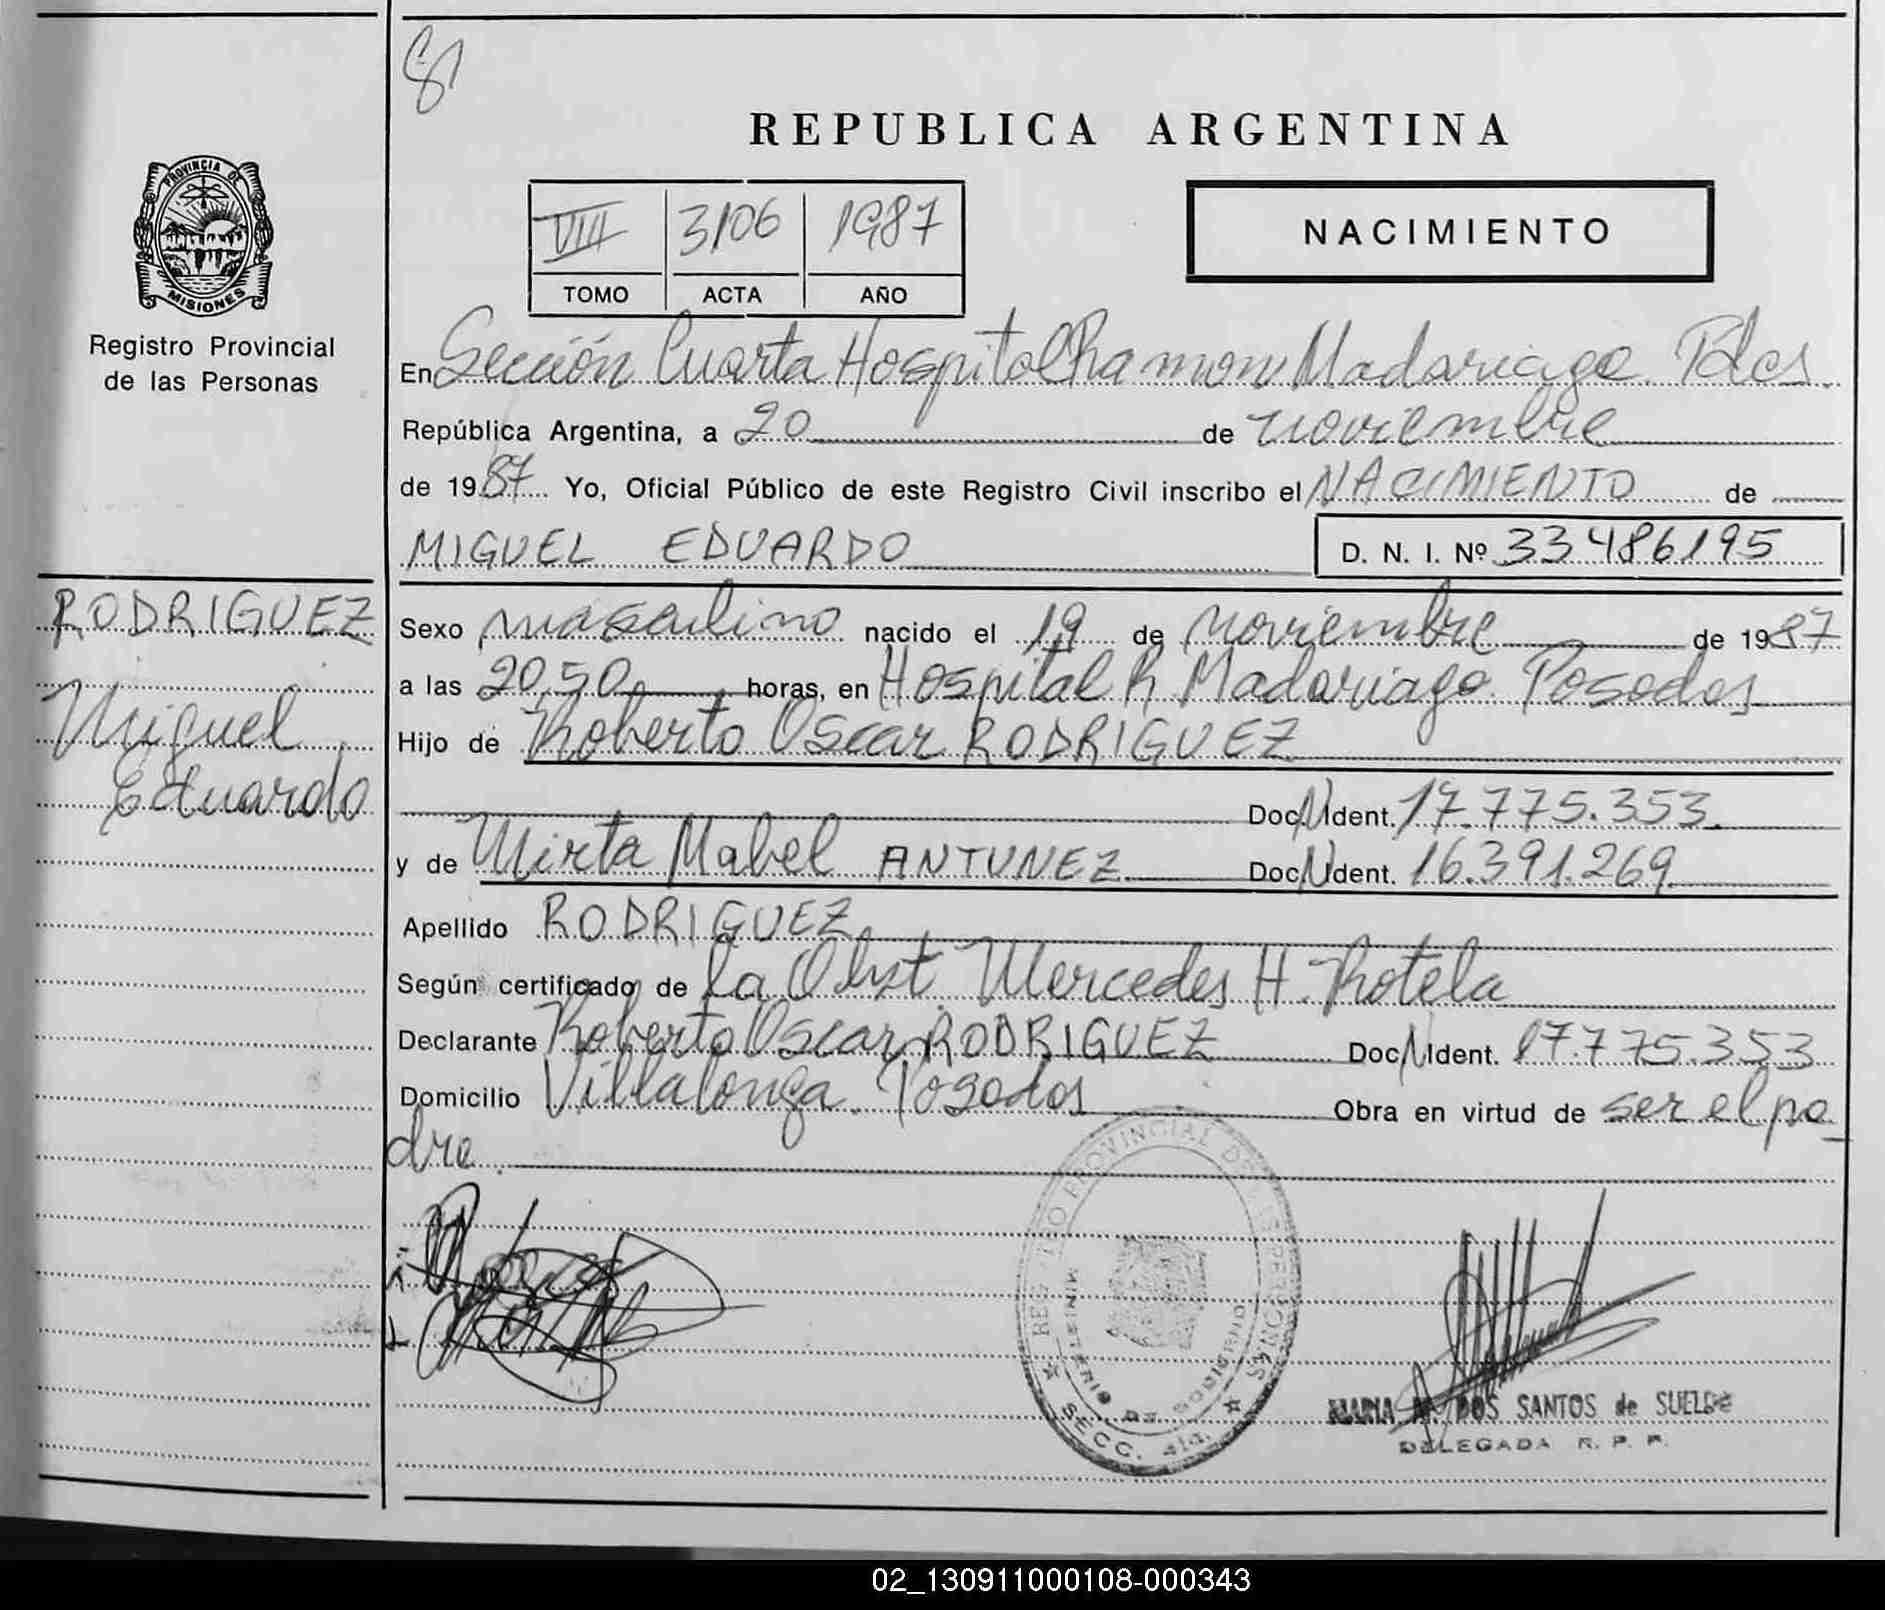 81
REPUBLICA ARGENTINA
PROVINCIA DE
MISIONES
Registro Provincial
de las Personas
VIII 3106 1987
TOMO ACTA AÑO
NACIMIENTO
En Sección Cuarta Hospital Ramon Madariaga. Pdas
República Argentina, a 20 de noviembre
de 1987 Yo, Oficial Público de este Registro Civil inscribo el NACIMIENTO de
MIGUEL EDUARDO D. N. I. Nº 33486195
RODRIGUEZ
Miguel
Eduardo
Sexo masculino nacido el 19 de noviembre de 1987
a las 20,50 horas, en Hospital R. Madariaga. Posadas
Hijo de Roberto Oscar RODRIGUEZ
Doc. N. Ident. 17.775.353.
y de Mirta Mabel ANTUNEZ Doc. N. Ident. 16.391.269
Apellido RODRIGUEZ
Según certificado de la Obst. Mercedes H. Rotela
Declarante Roberto Oscar RODRIGUEZ Doc. N. Ident. 17.775.353
Domicilio Villalonga. Posadas Obra en virtud de ser el pa_
dre
REGISTRO PROVINCIAL DE LAS PERSONAS
MINISTERIO DE GOBIERNO
SECC. 4ta.
MARIA N. DOS SANTOS de SUELDE
DELEGADA R. P. P.
02_130911000108-000343